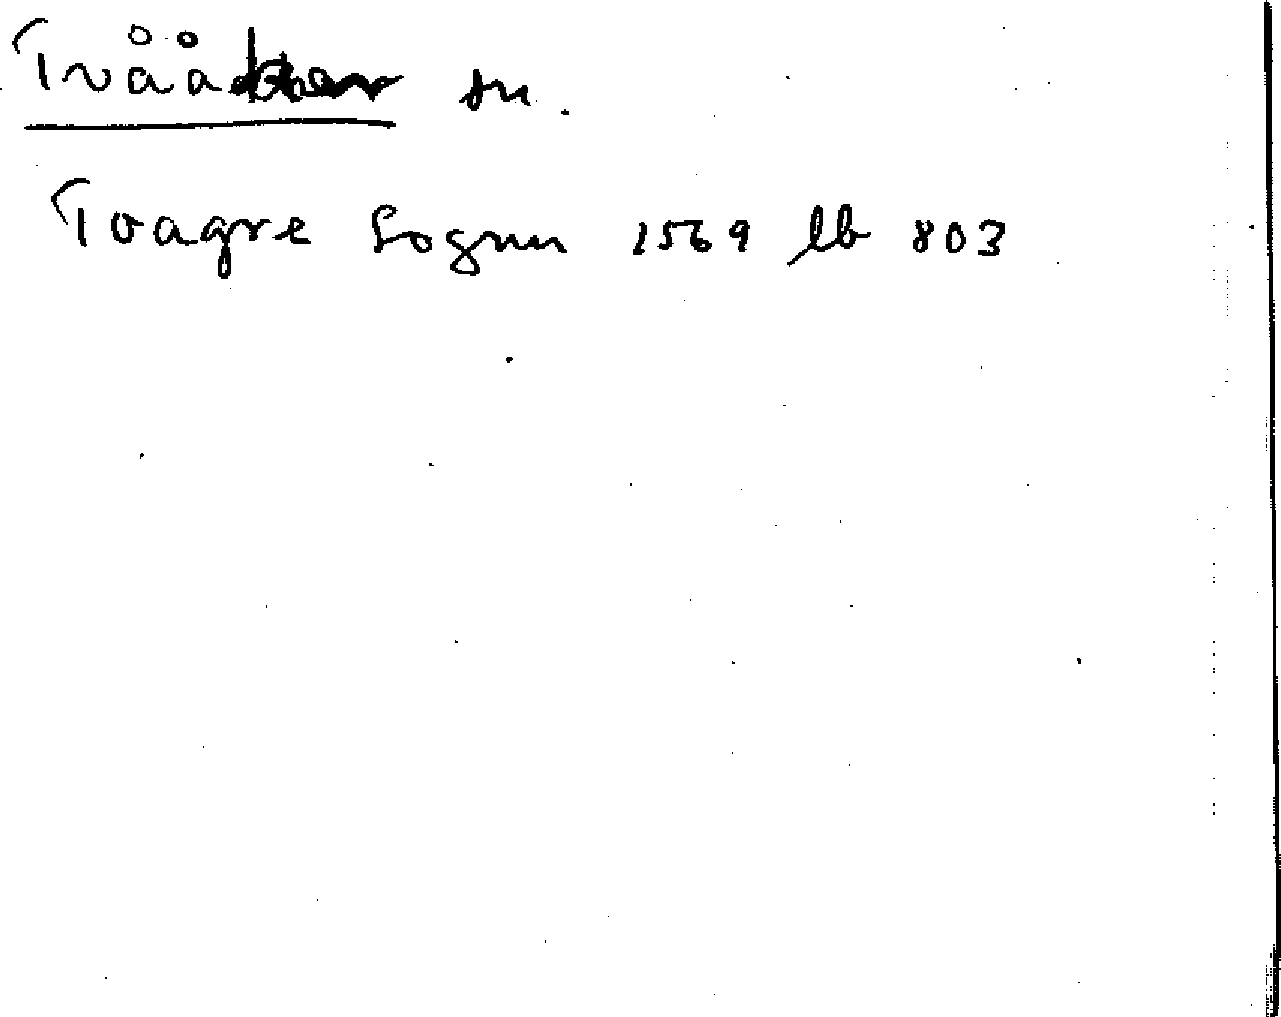 Tvååker sn.
Tvagre Sognn 1569 lb 803